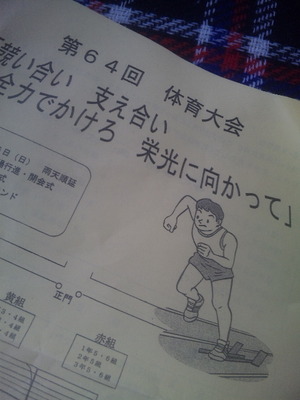 第64回 体育大会
競い合い 支え合い
全力でかけろ 栄光に向かって」
日(日) 雨天順延
行進・開会式
式
ンド
正門
黄組
・4組
・4組
・4組
赤組
1年5・6組
2年3組
3年5・6組